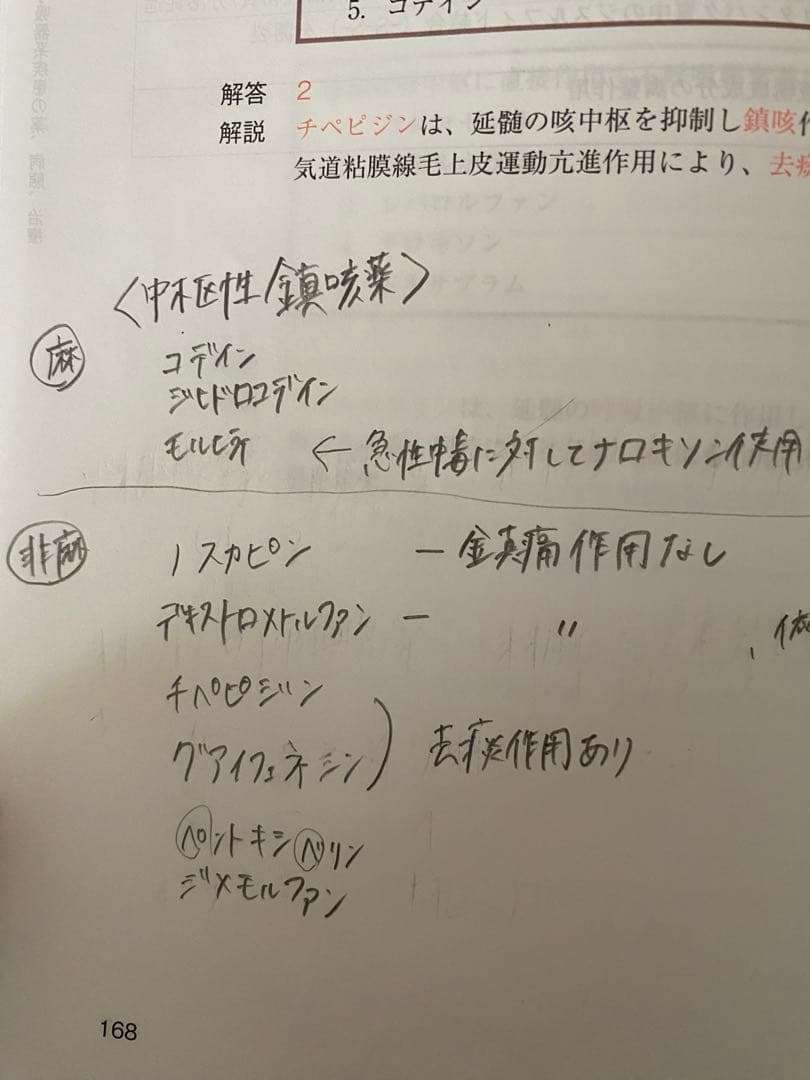 5. コデイン
解答 2
解説 チペピジンは、延髄の咳中枢を抑制し鎮咳作
気道粘膜線毛上皮運動亢進作用により、去痰
〈中枢性鎮咳薬〉
麻 コデイン
ジヒドロコデイン
モルヒネ ← 急性中毒に対してナロキソン使用
非麻 ノスカピン ー 鎮痛作用なし
デキストロメトルファン ー 〃 、依
チペピジン
グアイフェネシン ) 去痰作用あり
ペントキシベリン
ジメモルファン
168